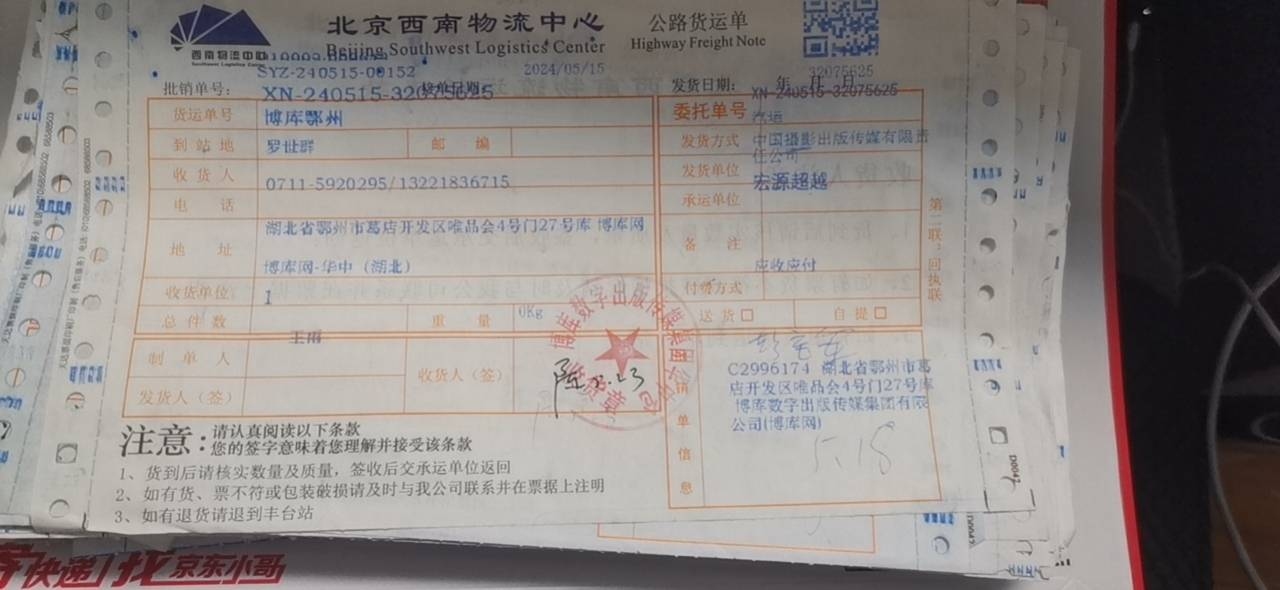 北京西南物流中心
Beijing Southwest Logistics Center
西南物流中心
Southwest Logistics Center
公路货运单
Highway Freight Note
32075625
SYZ-240515-00152
2024/05/15
批销单号：
XN-240515-32075625
接单日期：
发货日期： 年 月 日
XN-240515-32075625
货运单号
博库鄂州
委托单号
汽运
到站地
罗世群
邮 编
发货方式
中国摄影出版传媒有限责任公司
收货人
0711-5920295/13221836715
发货单位
宏源超越
电 话
承运单位
地 址
湖北省鄂州市葛店开发区唯品会4号门27号库 博库网
博库网-华中（湖北）
备 注
应收应付
收货单位
1
付费方式
总件数
王雨
重 量
0Kg
送货 □
自提 □
制单人
收货人（签）
陈 5.23
发货人（签）
博库数字出版传媒集团有限公司
收货章
单信息
C2996174 湖北省鄂州市葛
店开发区唯品会4号门27号库
博库数字出版传媒集团有限
公司(博库网)
5.18
第二联：回执联
注意：
请认真阅读以下条款
您的签字意味着您理解并接受该条款
1、货到后请核实数量及质量，签收后交承运单位返回
2、如有货、票不符或包装破损请及时与我公司联系并在票据上注明
3、如有退货请退到丰台站
快递 找京东小哥